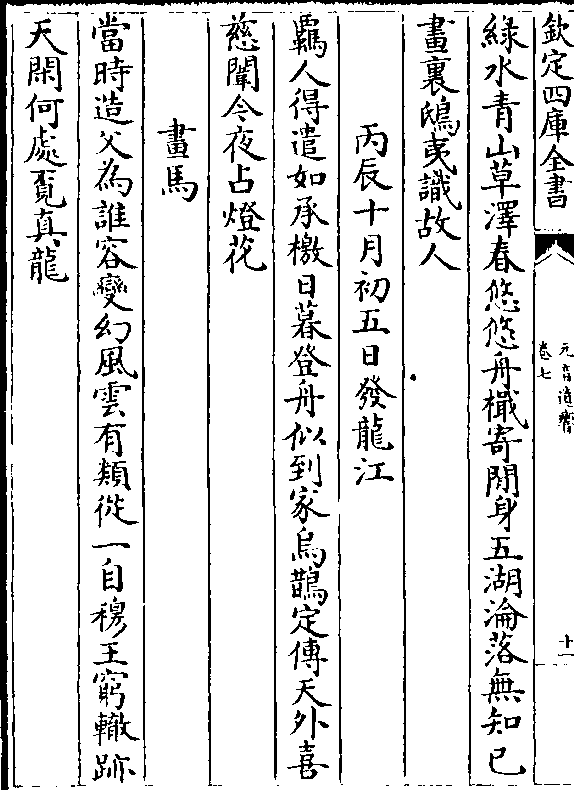 欽定四庫全書
元音遺響
卷七
十一
緑水青山草澤春悠悠舟檝寄閒身五湖淪落無知已
畫裏鴟夷識故人
丙辰十月初五日發龍江
羈人得遣如承檄日暮登舟似到家烏鵲定傳天外喜
慈闈今夜占燈花
畫馬
當時造父為誰容變幻風雲有類從一自穆王窮轍跡
天閑何處覔真龍